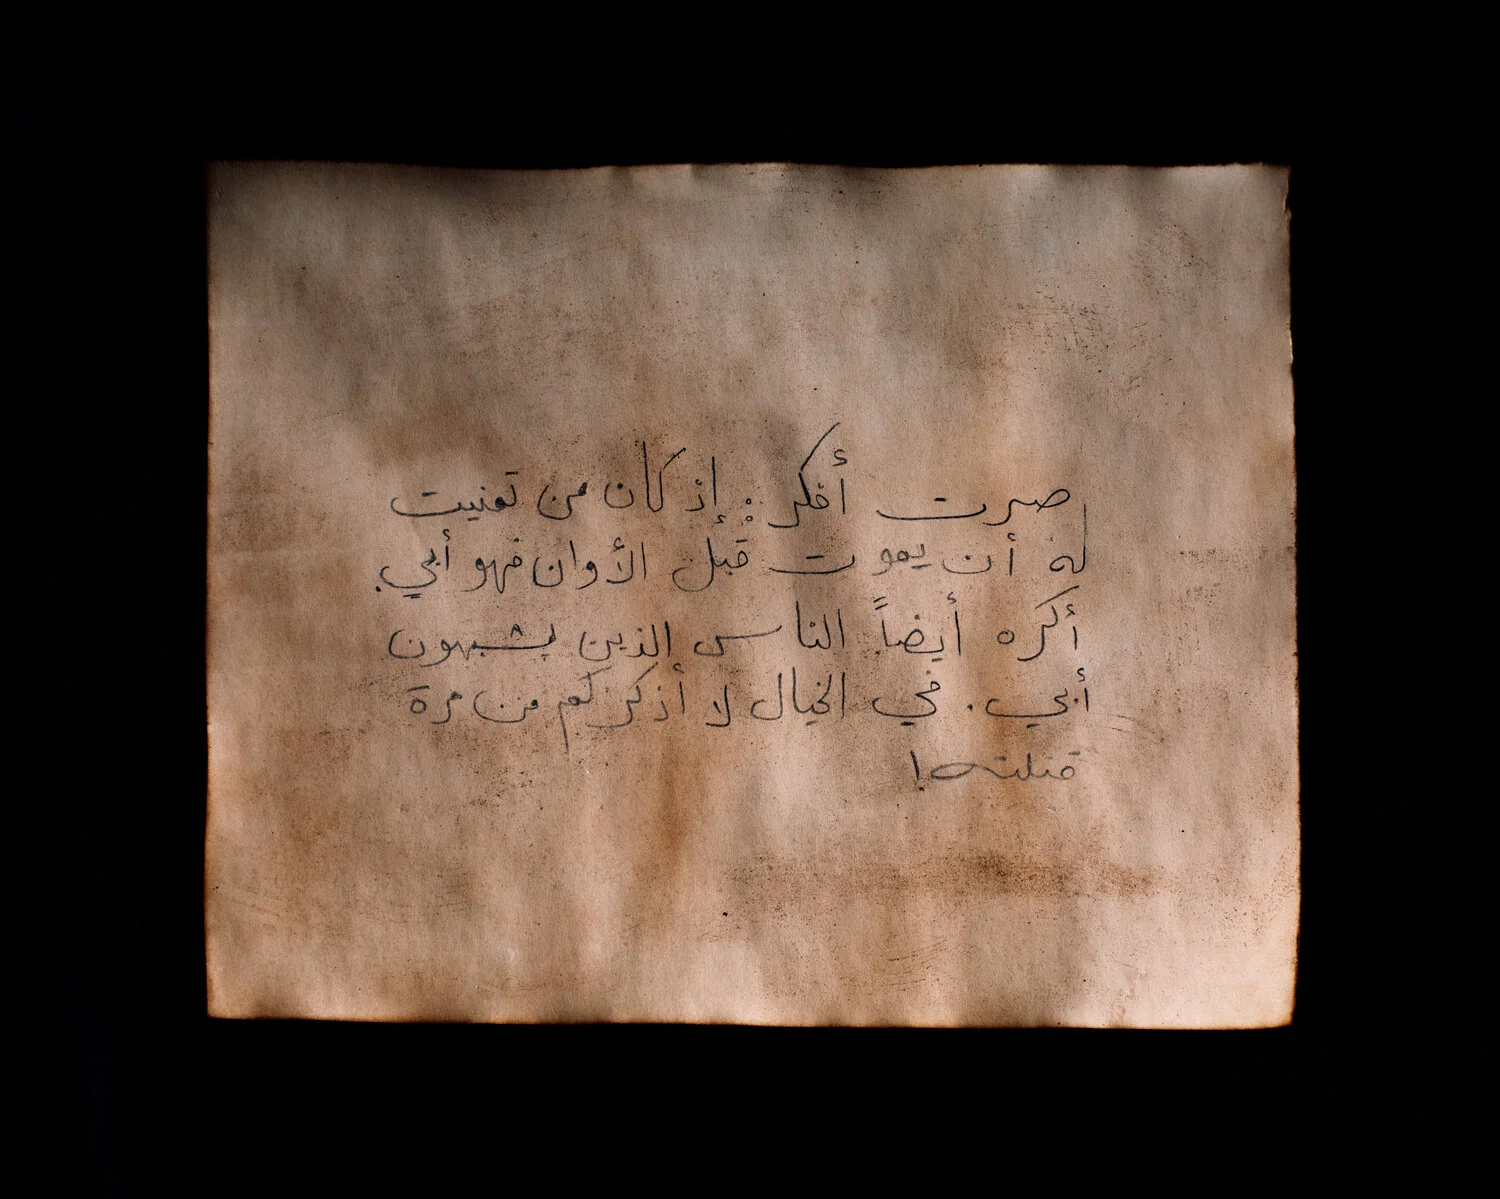 صرت أفكر: إذ كان من تمنيت
له أن يموت قبل الأوان فهو أبي.
أكره أيضاً الناس الذين يشبهون
أبي. في الخيال لا أذكر كم من مرة
قتلته!